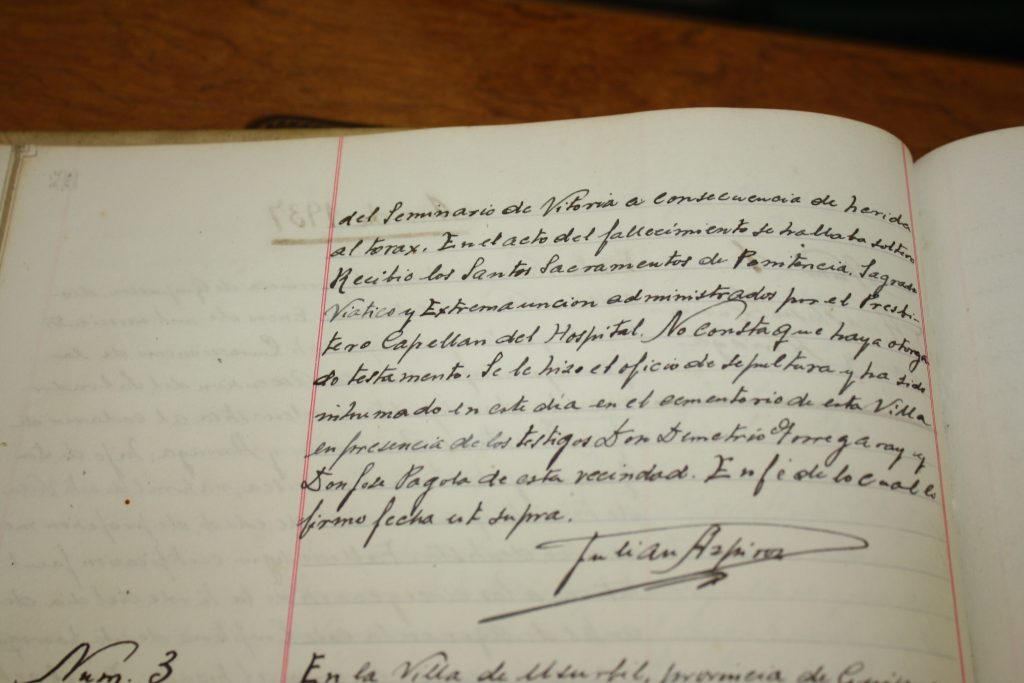 del Seminario de Vitoria a consecuencia de herida
al torax. En el acto del fallecimiento se hallaba soltero
Recibio los Santos Sacramentos de Penitencia, Sagrado
Viatico y Extremauncion administrados por el Presbi-
tero Capellan del Hospital. No consta que haya otorga
do testamento. Se le hizo el oficio de sepultura y ha sido
inhumado en este dia en el cementerio de esta Villa
en presencia de los testigos Don Demetrio Yturregaray y
Don Jose Pagola de esta vecindad. En fe de lo cual lo
firmo fecha ut supra.
Julian Azpiroz
Num. 3
En la Villa de Usurbil, provincia de